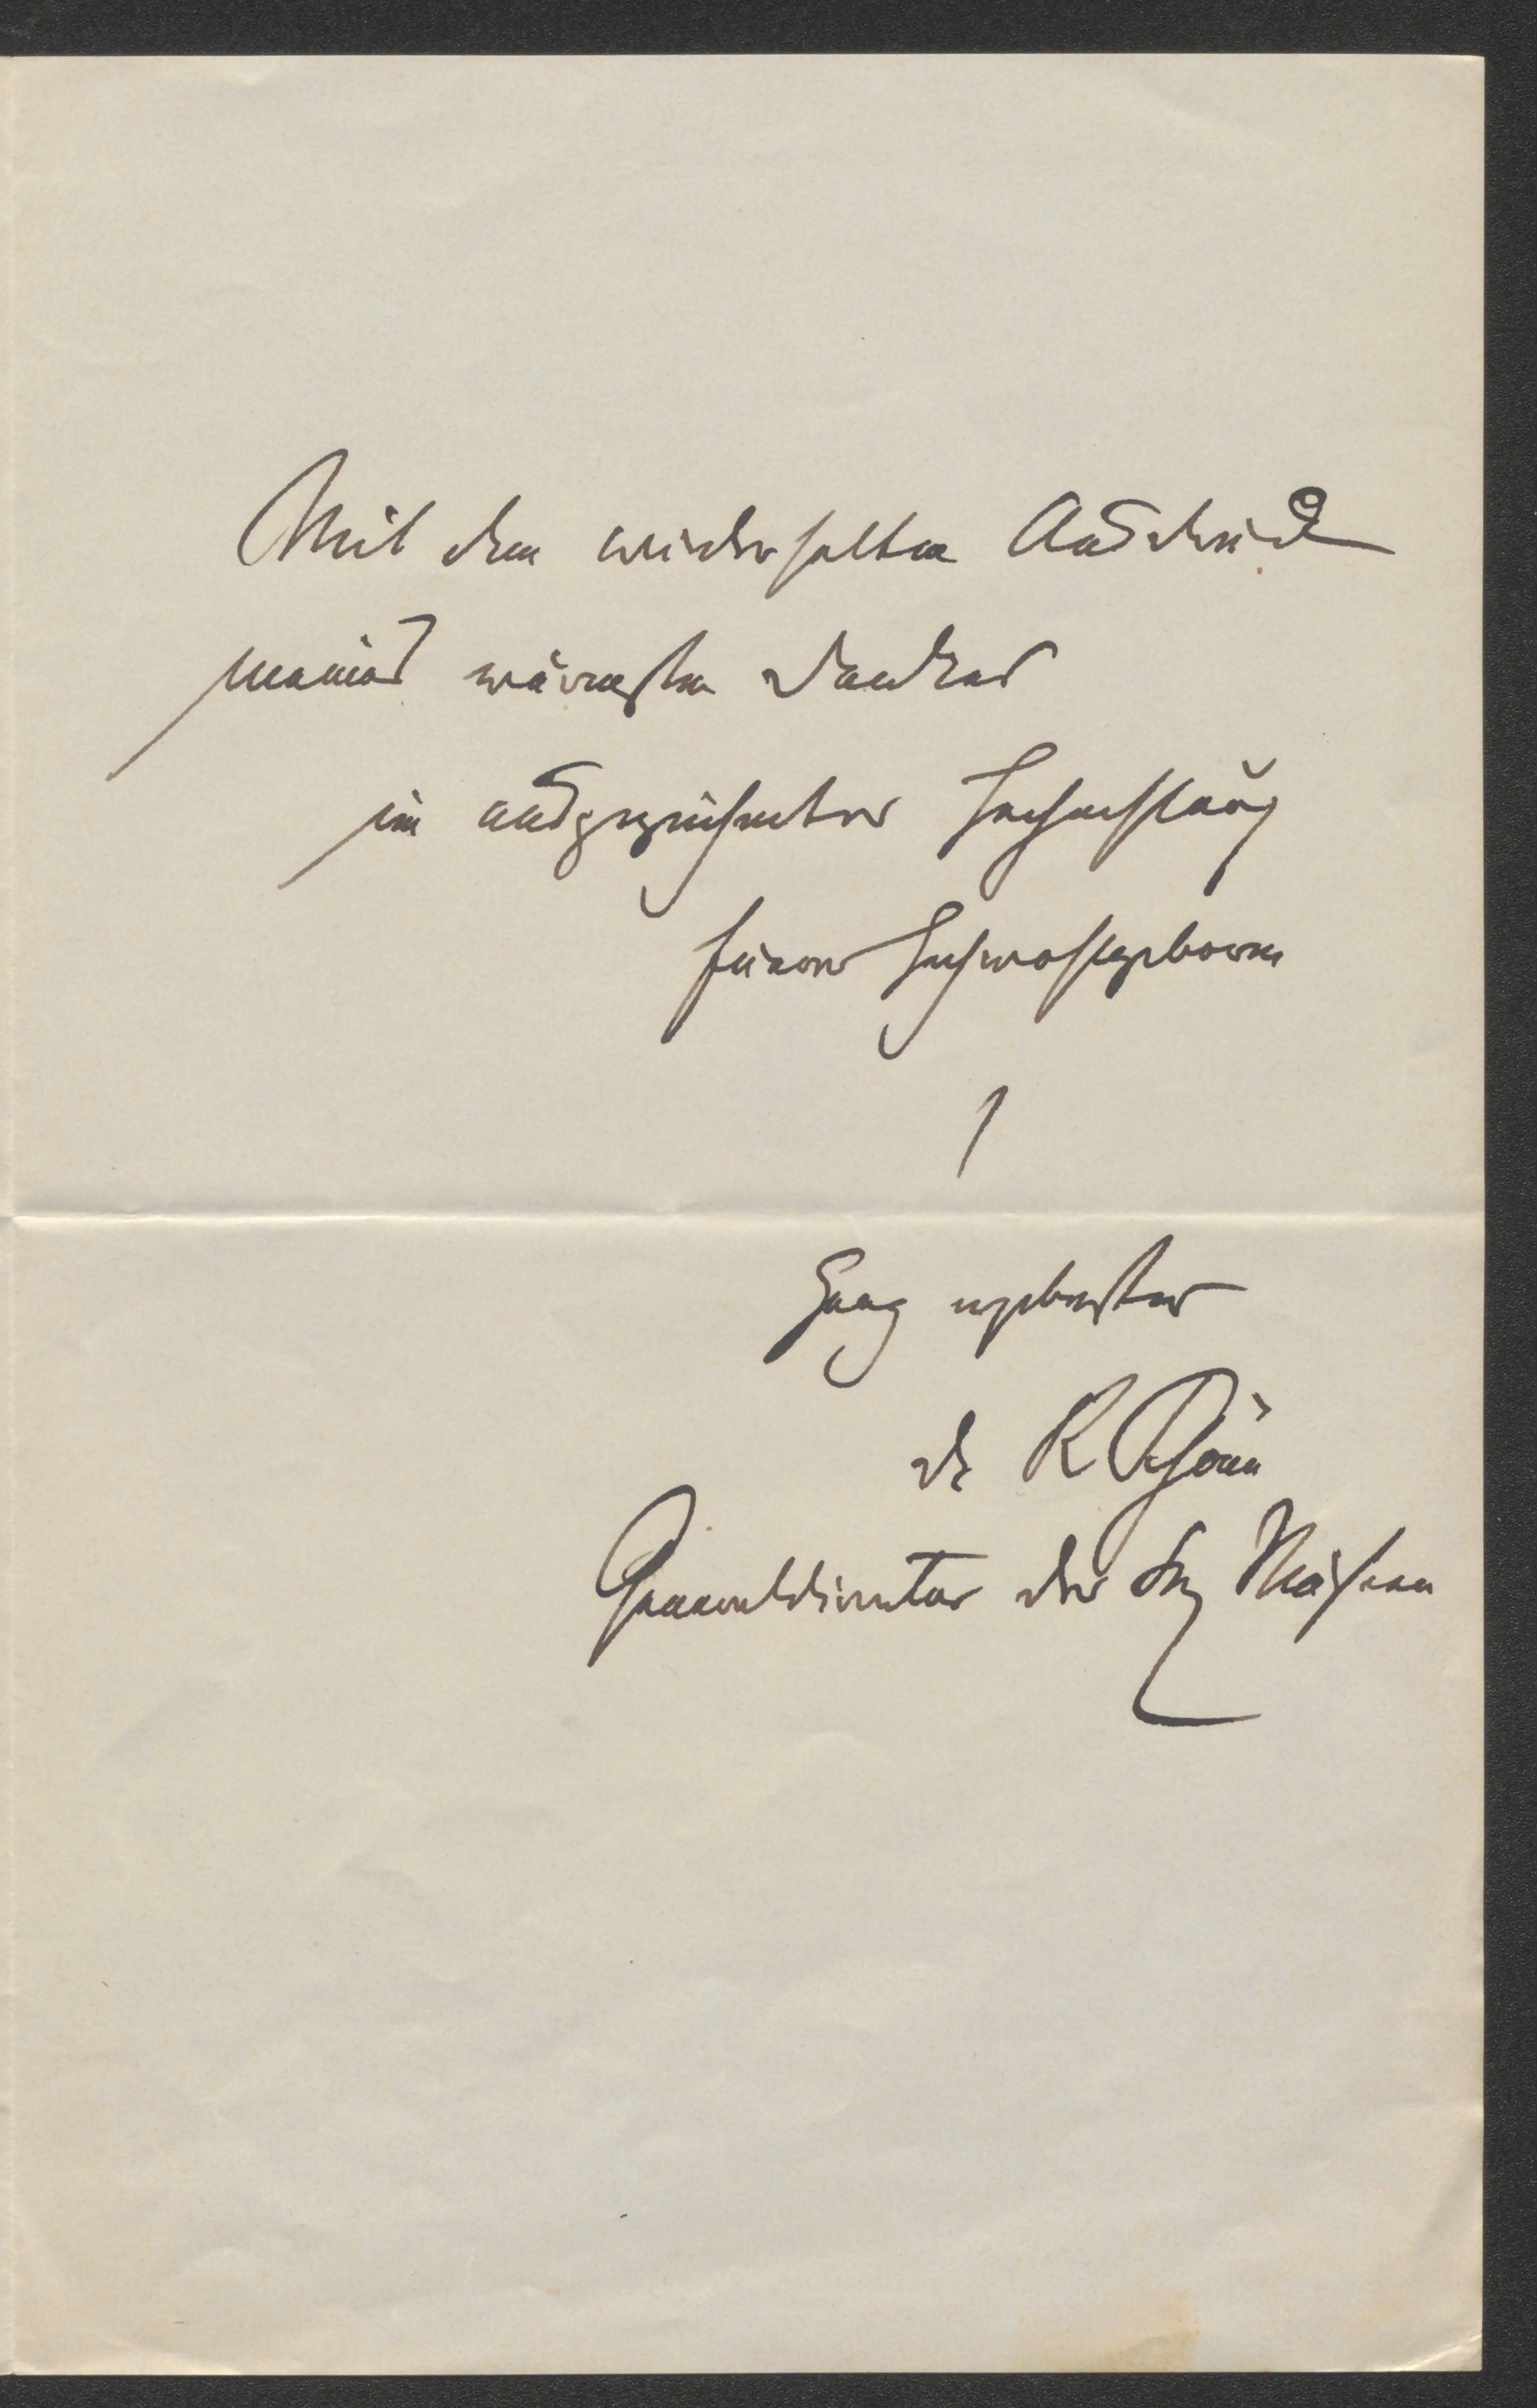 Mit dem wiederholten Ausdruck
meines wärmsten Dankes
in ausgezeichneter Hochachtung
Euerer Hochwohlgeboren
ganz ergebenster
Dr R Schöne
Generaldirector der Kgl Museen